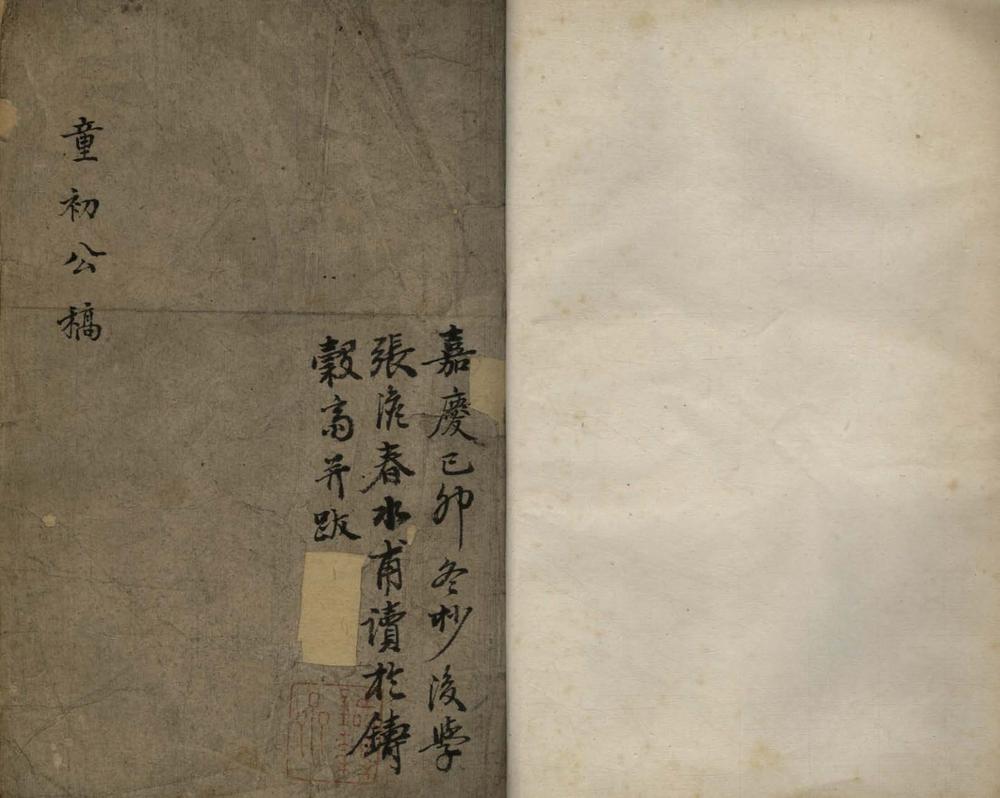 嘉慶己卯冬杪後學
張澹春水甫讀於鑄
穀高并跋
童初公稿